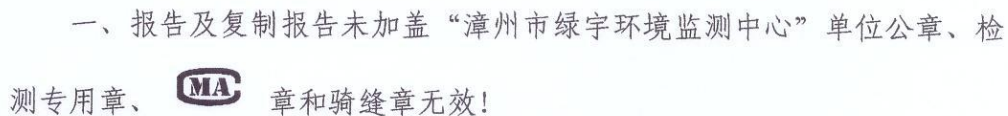 一、报告及复制报告未加盖“漳州市绿宇环境监测中心”单位公章、检
测专用章、 MA 章和骑缝章无效！